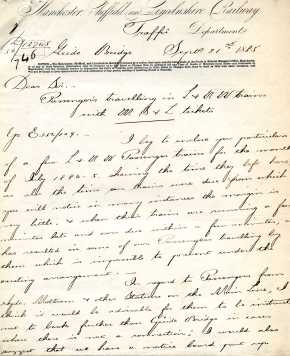 Manchester, Sheffield, and Lincolnshire Railway.
Traffic Department
Guide Bridge Sept 21st 1885
Dear Sir,
Passengers travelling in L & N W trains
with M S & L tickets
I beg to enclose you particulars
of a few L & N W Passenger trains for the month
of July 1884-5. Shewing the time they left here
as the time our trains were due from which
you will notice in many instances the margin is
very little, & when their trains are running a few
minutes late and ours due within a few minutes, it
has resulted in some of our Passengers travelling by
them which is impossible to prevent under the
existing arrangement.
In regard to Passengers from
Hyde, Glossop & other Stations on the Main Line, I
think it would be advisable for them to be instructed
not to book further than Guide Bridge in cases
when there is not a connection; I would also
suggest that we have a notice board put up